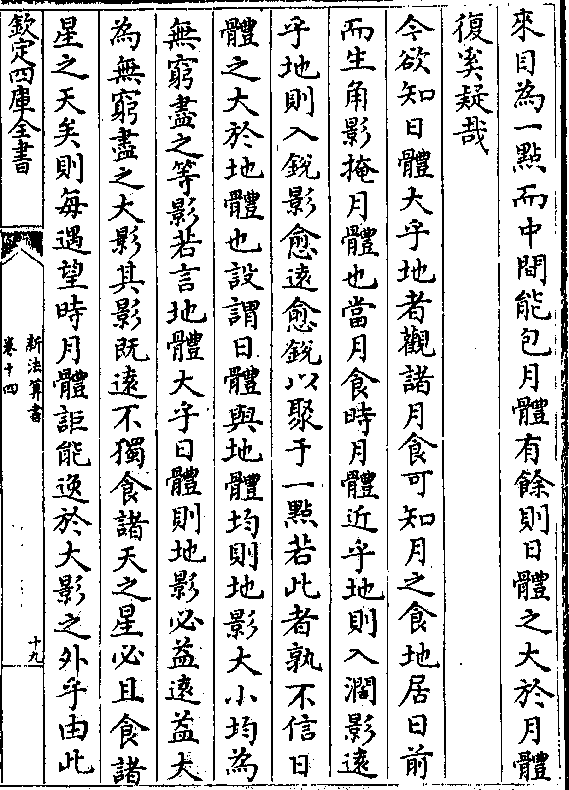 來目為一點而中間能包月體有餘則日體之大於月體
復奚疑哉
今欲知日體大乎地者觀諸月食可知月之食地居日前
而生角影掩月體也當月食時月體近乎地則入濶影遠
乎地則入銳影愈遠愈銳以聚于一點若此者孰不信日
體之大於地體也設謂日體與地體均則地影大小均為
無窮盡之等影若言地體大乎日體則地影必益遠益大
為無窮盡之大影其影既遠不獨食諸天之星必且食諸
星之天矣則每遇望時月體詎能逸於大影之外乎由此
欽定四庫全書
新法算書
卷十四
十九